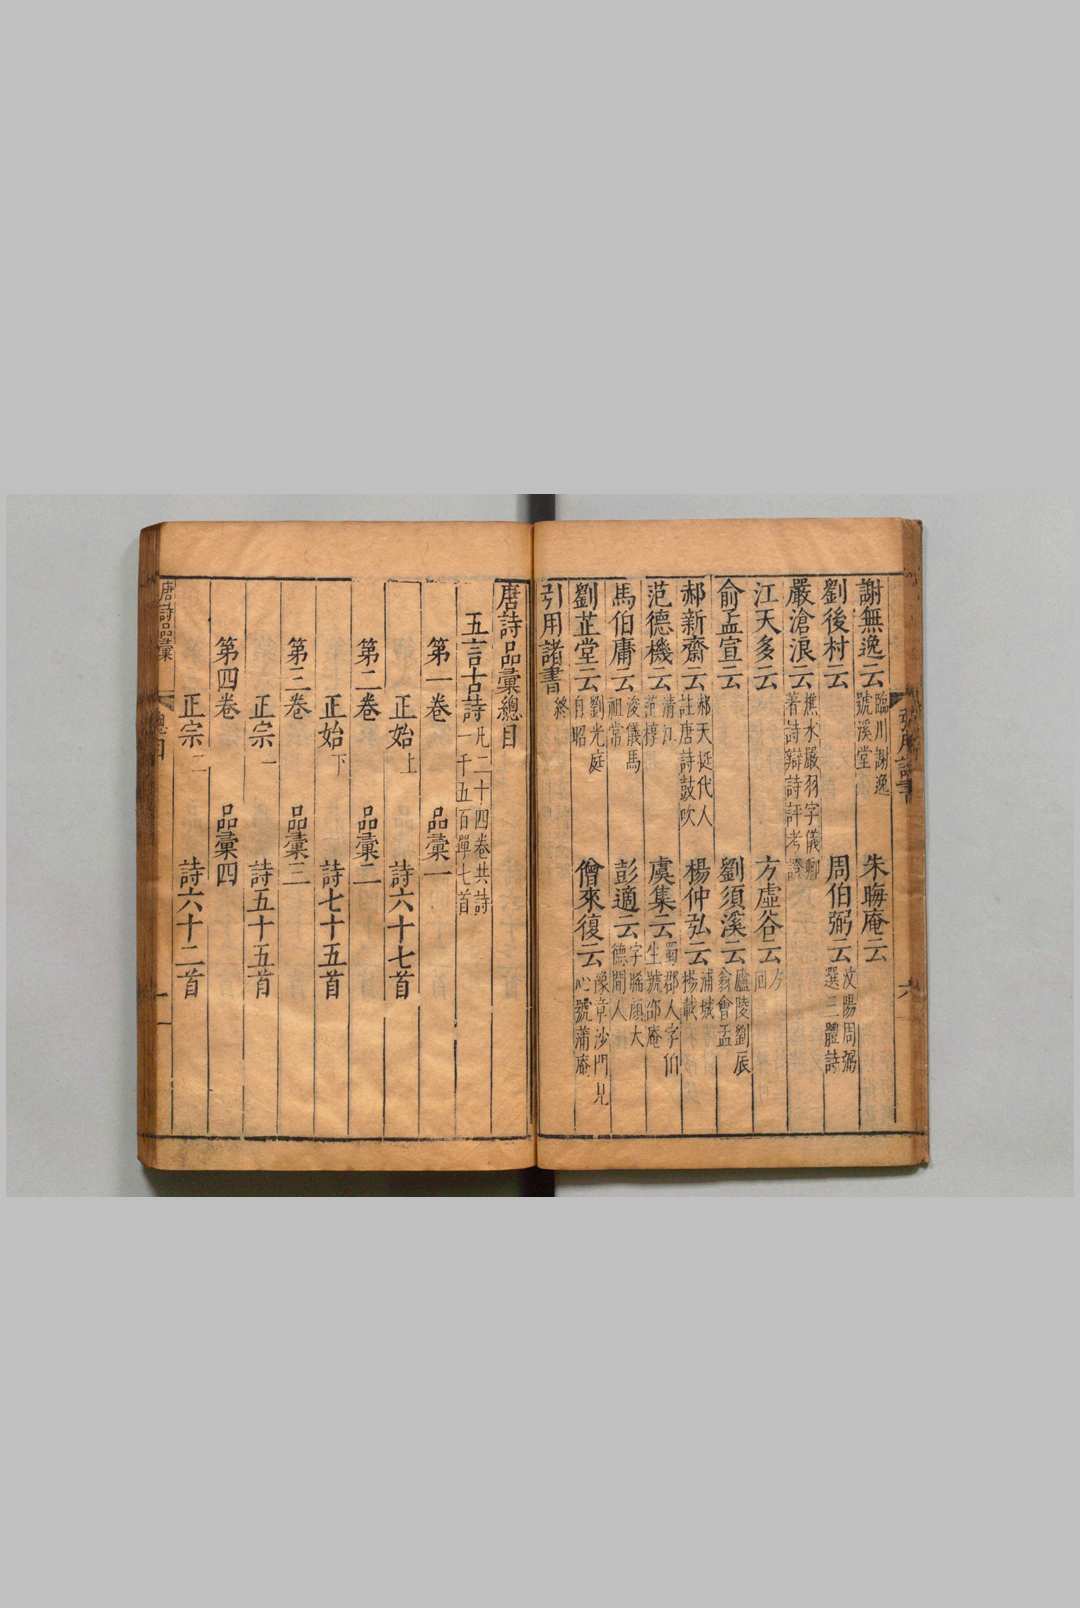 謝無逸云 臨川謝逸號溪堂 朱晦庵云
劉後村云 周伯弜云 汶陽周弜選三體詩
嚴滄浪云 樵水嚴羽字儀卿著詩辯詩評考證
江天多云 方虛谷云 方回
俞孟宣云 劉須溪云 廬陵劉辰翁會孟
郝新齋云 郝天挺代人註唐詩鼓吹 楊仲弘云 浦城楊載
范德機云 清江范梈 虞集云 蜀郡人字伯生號邵庵
馬伯庸云 浚儀馬祖常 彭適云
劉芷堂云 劉光庭自昭 僧來復云 豫章沙門見心號蒲庵
引用諸書 終
唐詩品彙總目
五言古詩 凡二十四卷共詩一千五百單七首
第一卷 品彙一
正始上 詩六十七首
第二卷 品彙二
正始下 詩七十五首
第三卷 品彙三
正宗一 詩五十五首
第四卷 品彙四
正宗二 詩六十二首
唐詩品彙 總目 一